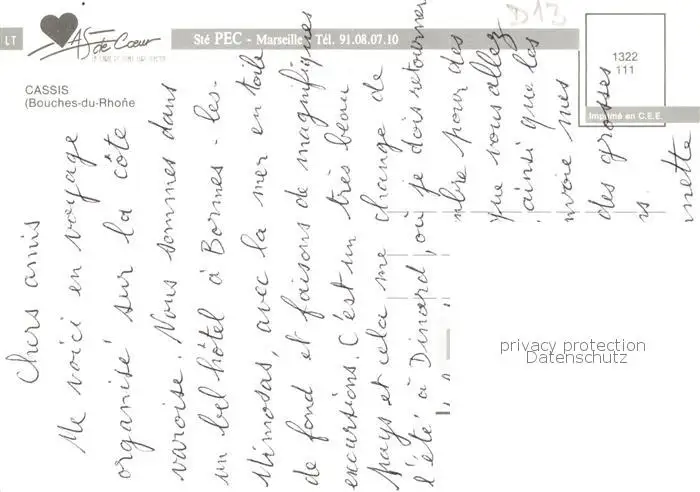 LT
AS de Cœur
Sté PEC - Marseille Tél. 91.08.07.10
D13
1322
111
Imprimé en C.E.E.
CASSIS
(Bouches-du-Rhône
Chers amis
Me voici en voyage
organisé sur la côte
varoise. Nous sommes dans
un bel hôtel à Bormes-les-
Mimosas, avec la mer en toile
de fond et faisons de magnifiques
excursions. C'est un très beau
pays et cela me change de
l'été à Dinard, où je dois retourner
mbre pour des
que vous allez
ainsi que les
nvoie mes
des grosses
is.
nette
privacy protection
Datenschutz